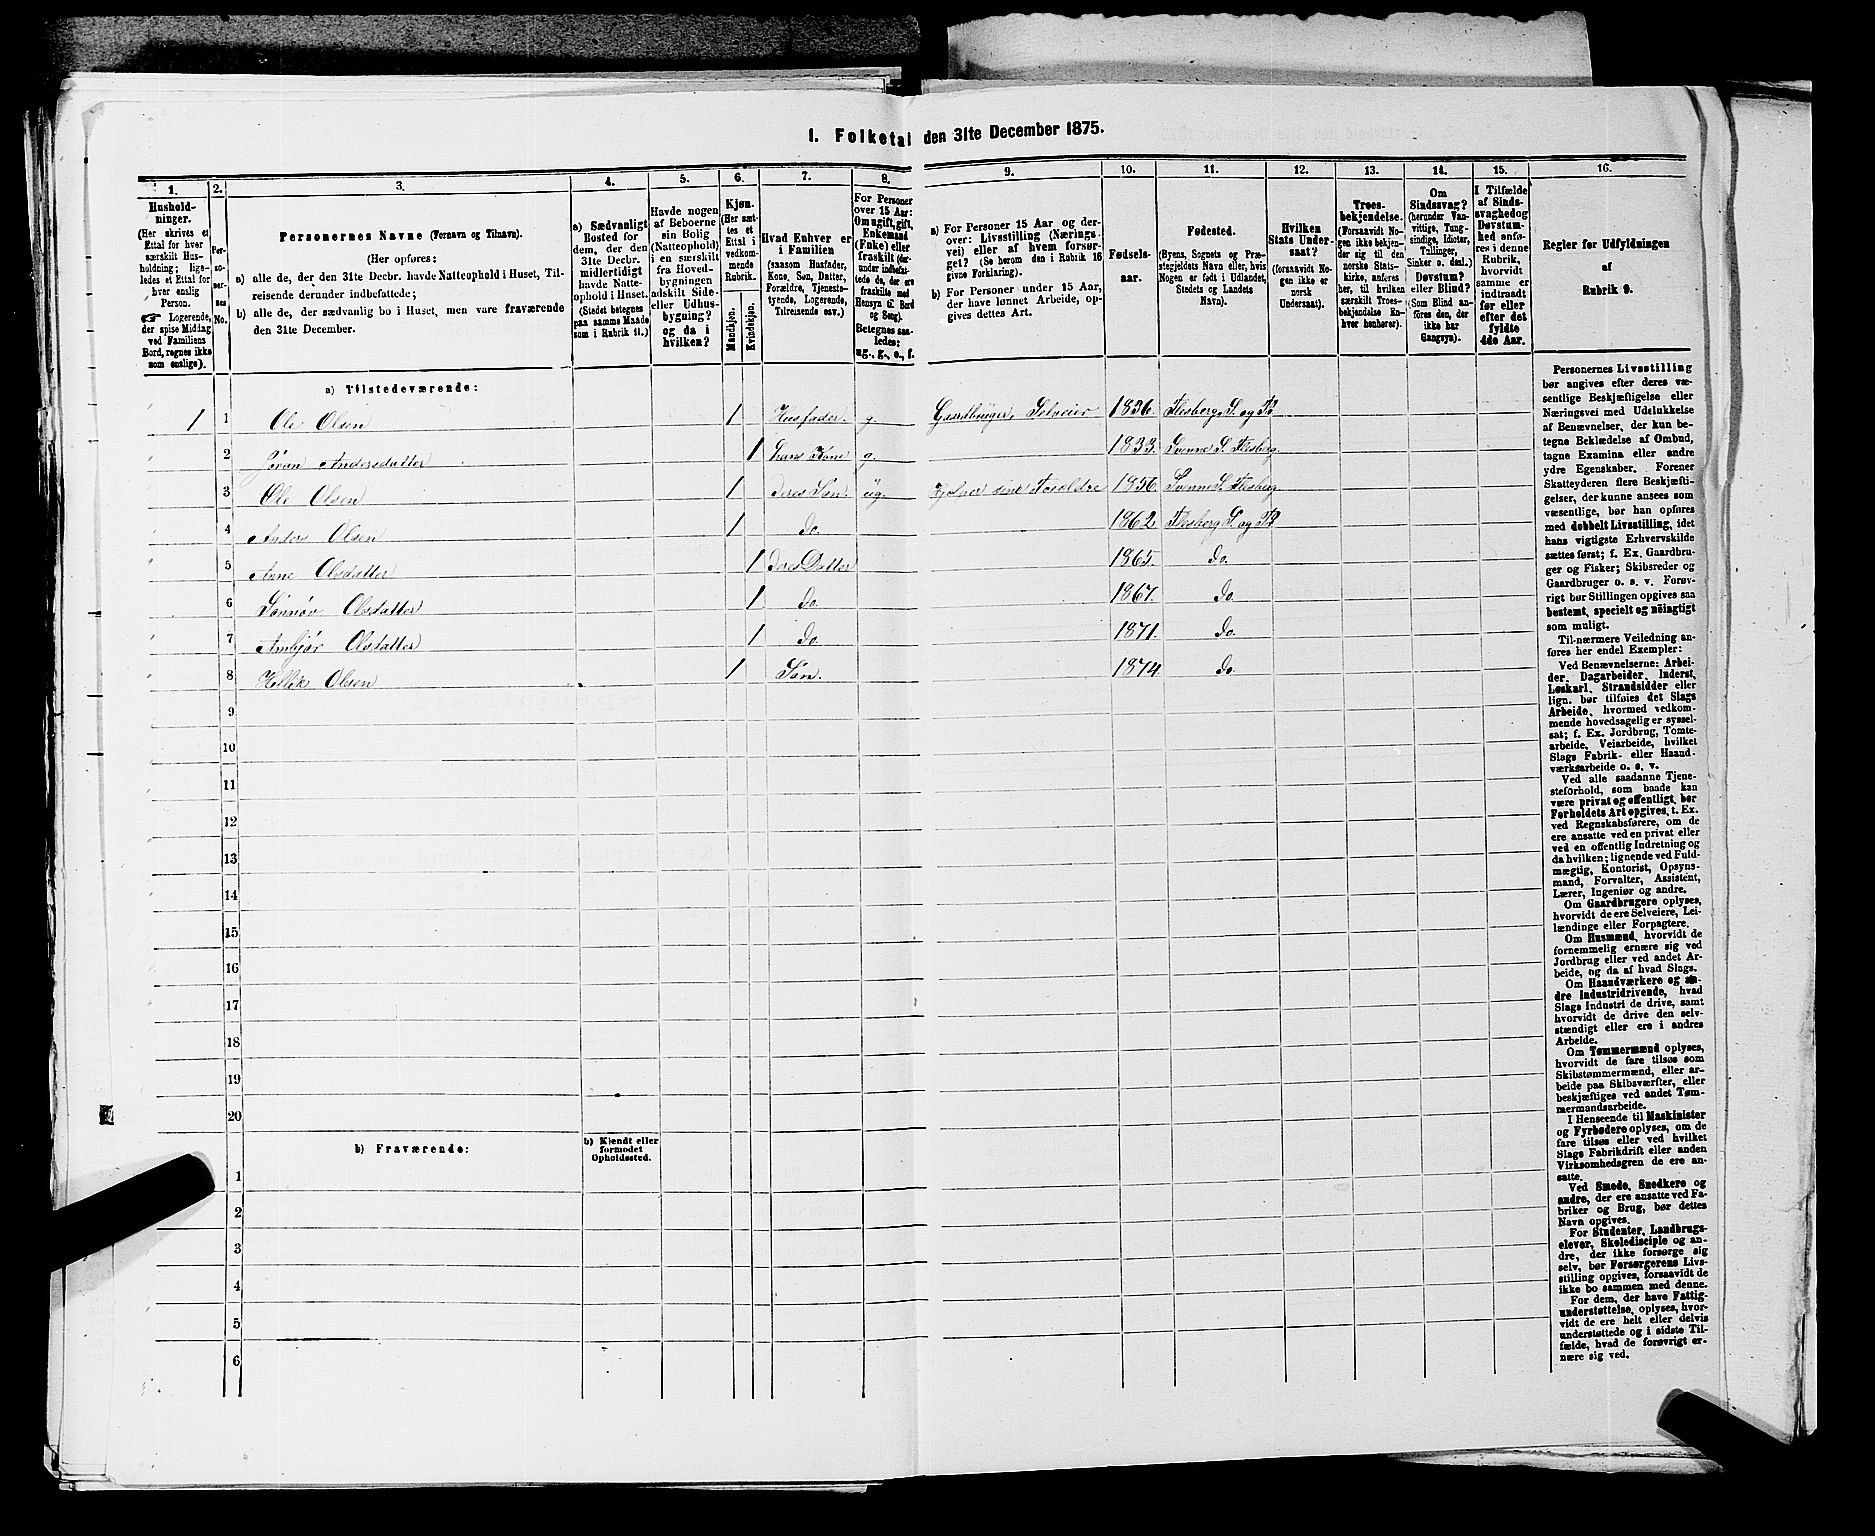 1. Folketal den 31te December 1875.
1. 2. 3. 4. 5. 6. 7. 8. 9. 10. 11. 12. 13. 14. 15. 16.
Hushold-
ninger.
(Her skrives et
Ettal for hver
særskilt Hus-
holdning; lige-
ledes et Ettal for
hver enslig
Person.
☞ Logerende,
der spise Middag
ved Familiens
Bord, regnes ikke
som enslige).
Per-
so-
ner-
nes
No.
Personernes Navne (Fornavn og Tilnavn).
(Her opføres:
a) alle de, der den 31te Decbr. havde Natteophold i Huset, Til-
reisende derunder indbefattede;
b) alle de, der sædvanlig bo i Huset, men vare fraværende
den 31te December.
a) Sædvanligt
Bosted for
dem, der den
31te Decbr.
midlertidigt
havde Natte-
ophold i Huset.
(Stedet betegnes
paa samme Maade
som i Rubrik 11.)
Havde nogen
af Beboerne
sin Bolig
(Natteophold)
i en særskilt
fra Hoved-
bygningen
adskilt Side-
eller Udhus-
bygning?
og da i
hvilken?
Kjøn.
(Her sæt-
tes et
Ettal i
vedkom-
mende
Rubrik.
Mandkjøn.
Kvindekjøn.
Hvad Enhver er
i Familien
(saasom Husfader,
Kone, Søn, Datter,
Forældre, Tjeneste-
tyende, Logerende,
Tilreisende osv.)
For Personer
over 15 Aar:
Om ugift, gift,
Enkemand
(Enke) eller
fraskilt (der-
under indbefat-
tede de, der ere
fraskilte med
Hensyn til Bord
og Seng).
Betegnes saa-
ledes:
ug., g., e., f.
a) For Personer 15 Aar og der-
over: Livsstilling (Nærings-
vei) eller af hvem forsør-
get? (Se herom den i Rubrik 16
givne Forklaring).
b) For Personer under 15 Aar,
der have lønnet Arbeide, op-
gives dettes Art.
Fødsels-
aar.
Fødested.
(Byens, Sognets og Præ-
stegjeldets Navn eller, hvis
Nogen er født i Udlandet,
Stedets og Landets
Navn).
Hvilken
Stats Under-
saat?
(forsaavidt No-
gen ikke er
norsk
Undersaat).
Troes-
bekjendelse.
(Forsaavidt No-
gen ikke bekjen-
der sig til den
norske Stats-
kirke, anføres
her, til hvilken
særskilt Troes-
bekjendelse En-
hver henhører).
Om
Sindssvag?
(herunder Van-
vittige, Tung-
sindige, Idioter,
Tullinger,
Sinker o. desl.)
Døvstum?
eller Blind?
(Som Blind an-
føres den, der
ikke har
Gangsyn).
I Tilfælde
af Sinds-
svaghed og
Døvstum-
hed anfø-
res i denne
Rubrik,
hvorvidt
samme er
indtraadt
før eller
efter det
fyldte
4de Aar.
Regler for Udfyldningen
af
Rubrik 9.
a) Tilstedeværende:
1 1 Ole Olsen 1 Husfader. g. Gaardbruger, Selveier 1836. Flesberg S. og P.
2 Jøran Andersdatter 1 Hans Kone g. 1833. Svenne S. Flesberg.
3 Ole Olsen 1 Deres Søn. ug. Hjelper sine Forældre 1856. Svenne S. Flesberg.
4 Anders Olsen 1 do. 1862. Flesberg S. og P.
5 Anne Olsdatter 1 Deres Datter 1865. do.
6 Sønnøv Olsdatter 1 do. 1867. do.
7 Ambjør Olsdatter 1 do. 1871. do.
8 Hellik Olsen 1 Søn. 1874. do.
9
10
11
12
13
14
15
16
17
18
19
20
b) Fraværende:
b) Kjendt eller
formodet
Opholdssted.
1
2
3
4
5
6
Personernes Livsstilling
bør angives efter deres væ-
sentlige Beskjæftigelse eller
Næringsvei med Udelukkelse
af Benævnelser, der kun be-
tegne Beklædelse af Ombud,
tagne Examina eller andre
ydre Egenskaber. Forener
Skatteyderen flere Beskjæfti-
gelser, der kunne ansees som
væsentlige, bør han opføres
med dobbelt Livsstilling, idet
hans vigtigste Erhvervskilde
sættes først; f. Ex. Gaardbru-
ger og Fisker; Skibsreder og
Gaardbruger o. s. v. Forøv-
rigt bør Stillingen opgives saa
bestemt, specielt og nøiagtigt
som muligt.
Til nærmere Veiledning an-
føres her endel Exempler:
Ved Benævnelserne: Arbei-
der, Dagarbeider, Inderst,
Løskarl, Strandsidder eller
lign. bør tilføies det Slags
Arbeide, hvormed vedkom-
mende hovedsagelig er syssel-
sat; f. Ex. Jordbrug, Tomte-
arbeide, Veiarbeide, hvilket
Slags Fabrik- eller Haand-
værksarbeide o. s. v.
Ved alle saadanne Tjene-
steforhold, som baade kan
være privat og offentligt, bør
Forholdets Art opgives, t. Ex.
ved Regnskabsførere, om de
ere ansatte ved en privat eller
ved en offentlig Indretning og
da hvilken; lignende ved Fuld-
mægtig, Kontorist, Opsyns-
mand, Forvalter, Assistent,
Lærer, Ingeniør og andre.
Om Gaardbrugere oplyses,
hvorvidt de ere Selveiere, Lei-
lændinge eller Forpagtere.
Om Husmænd, hvorvidt de
fornemmelig ernære sig ved
Jordbrug eller ved andet Ar-
beide, og da af hvad Slags.
Om Haandværkere og an-
dre Industridrivende, hvad
Slags Industri de drive, samt
hvorvidt de drive den selv-
stændigt eller ere i andres
Arbeide.
Om Tømmermænd oplyses,
hvorvidt de fare tilsøs som
Skibstømmermænd, eller ar-
beide paa Skibsværfter, eller
beskjæftiges ved andet Tøm-
mermandsarbeide.
I Henseende til Maskinister
og Fyrbødere oplyses, om de
fare tilsøs eller ved hvilket
Slags Fabrikdrift eller anden
Virksomhedsgren de ere an-
satte.
Ved Smede, Snedkere og
andre, der ere ansatte ved Fa-
briker og Brug, bør dettes
Navn opgives.
For Studenter, Landbrugs-
elever, Skoledisciple og an-
dre, der ikke forsørge sig
selv, bør Forsørgerens Livs-
stilling opgives, forsaavidt de
ikke bo sammen med denne.
For dem, der have Fattig-
understøttelse, oplyses, hvor-
vidt de ere helt eller delvis
understøttede og i sidste Til-
fælde, hvad de forøvrigt er-
nære sig ved.